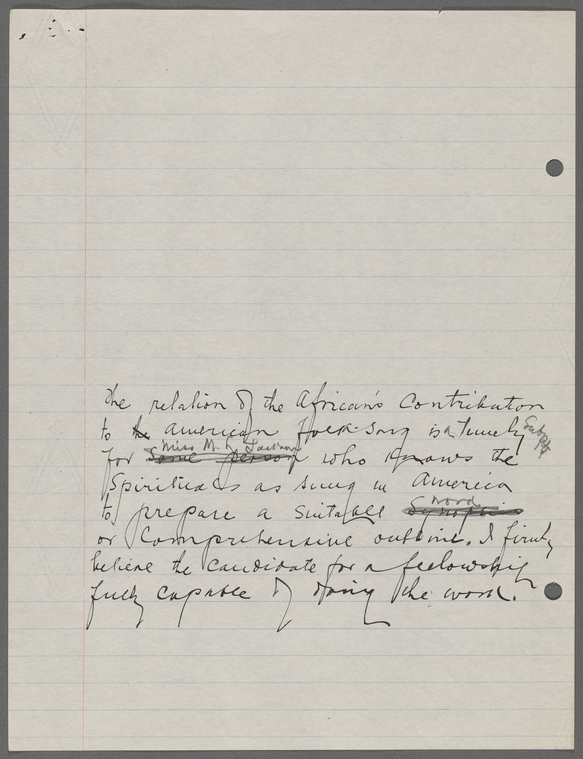 The relation of the African's Contribution
to the American Folk Song is a timely
for Some person Miss M. L. who knows the
Spirituals as sung in America
to prepare a suitable Synopsis word
or Comprehensive outline. I firmly
believe the Candidate for a fellowship
fully capable of doing the work.